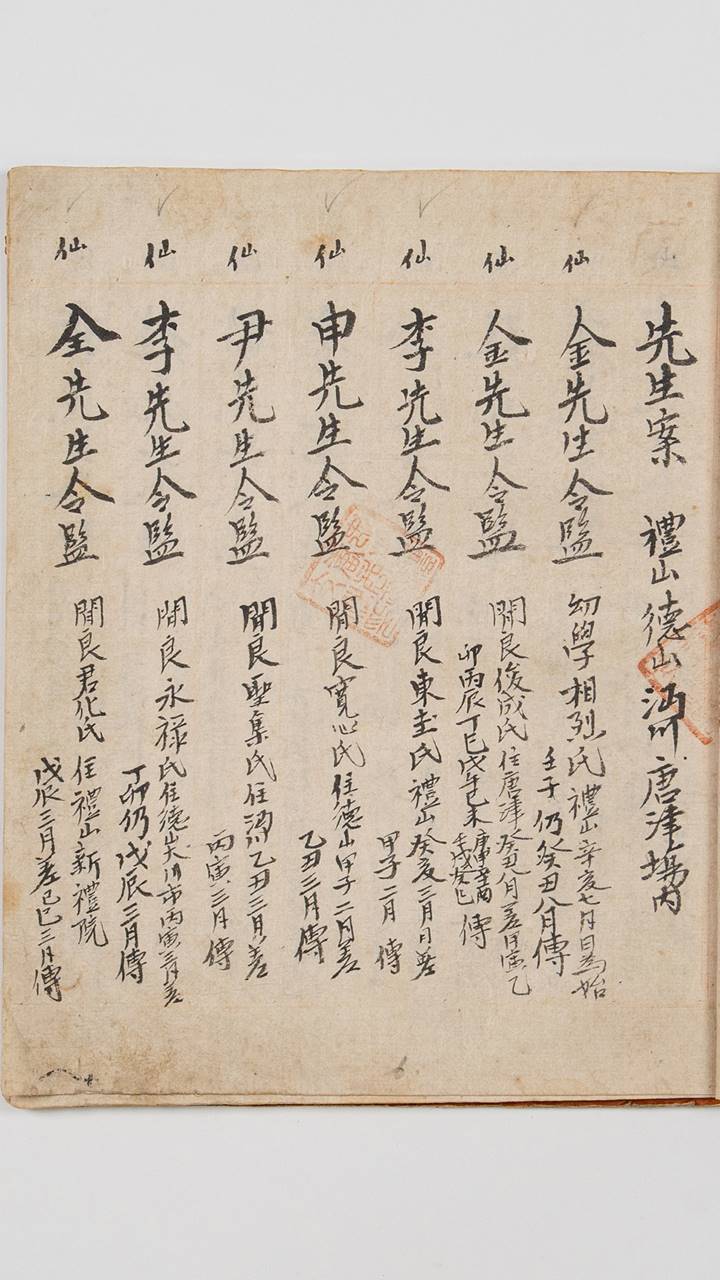 先生案 禮山 德山 沔川 唐津 場內
仙 金先生令監 幼學相烈氏 禮山 辛亥七月日爲始
壬子仍癸丑八月傳
仙 金先生令監 閒良俊成氏 住唐津 癸丑八月差甲寅乙
卯丙辰丁巳戊午己未庚申辛酉
壬戌癸亥 傳
仙 李先生令監 閒良東圭氏 禮山 癸亥三月日差
甲子二月 傳
仙 申先生令監 閒良寬心氏 住德山 甲子二月差
乙丑三月傳
仙 尹先生令監 閒良聖集氏 住沔 乙丑三月差
丙寅三月傳
仙 李先生令監 閒良永祿氏 住德山大川市 丙寅三月差
丁卯仍戊辰三月傳
仙 全先生令監 閒良君化氏 住禮山新禮院
戊辰三月差己巳三月傳